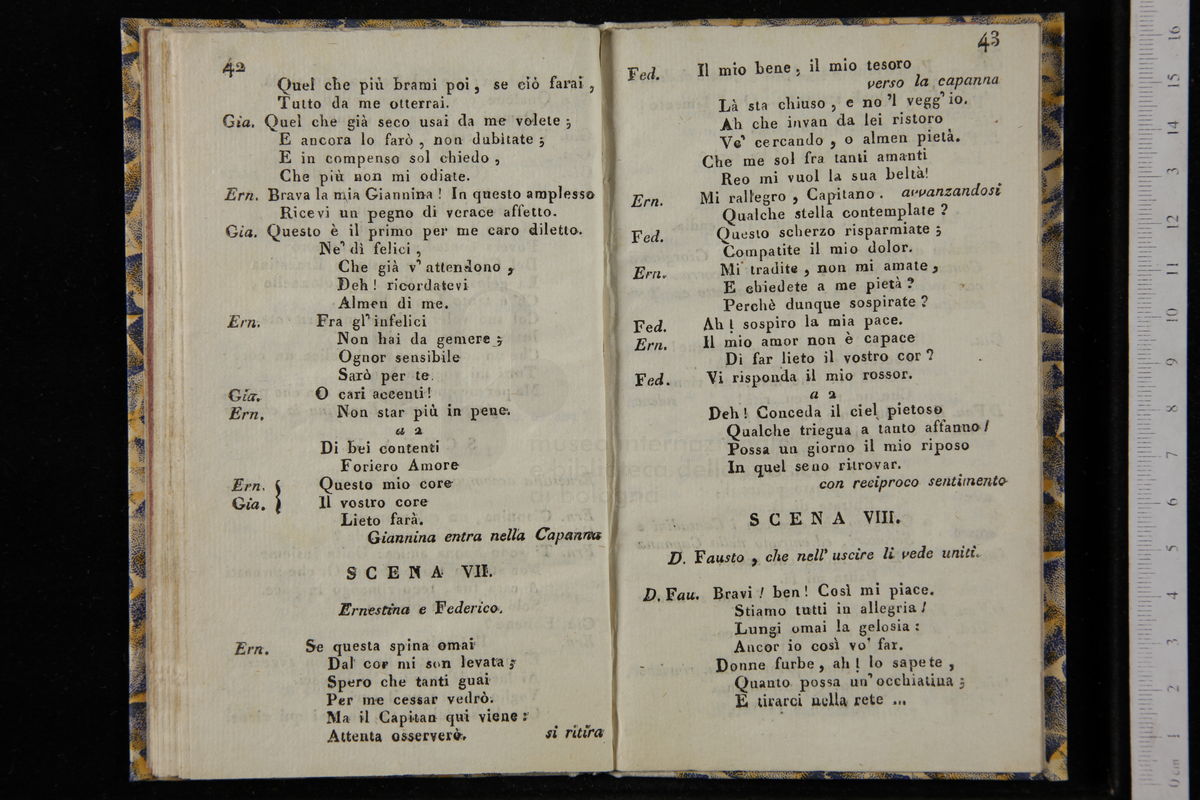 42
Quel che più brami poi, se ciò farai,
Tutto da me otterrai.
Gia. Quel che già seco usai da me volete;
E ancora lo farò, non dubitate;
E in compenso sol chiedo,
Che più non mi odiate.
Ern. Brava la mia Giannina! In questo amplesso
Ricevi un pegno di verace affetto.
Gia. Questo è il primo per me caro diletto.
Ne' dì felici,
Che già v'attendono,
Deh! ricordatevi
Almen di me.
Ern. Fra gl'infelici
Non hai da gemere;
Ognor sensibile
Sarò per te.
Gia. O cari accenti!
Ern. Non star più in pene.
a 2
Di bei contenti
Foriero Amore
Ern. { Questo mio core
Gia. } Il vostro core
Lieto farà.
Giannina entra nella Capanna
SCENA VII.
Ernestina e Federico.
Ern. Se questa spina omai
Dal cor mi son levata;
Spero che tanti guai
Per me cessar vedrò.
Ma il Capitan qui viene:
Attenta osserverò. si ritira
43
Fed. Il mio bene, il mio tesoro
verso la capanna
Là sta chiuso, e no 'l vegg'io.
Ah che invan da lei ristoro
Vo' cercando, o almen pietà.
Che me sol fra tanti amanti
Reo mi vuol la sua beltà!
Ern. Mi rallegro, Capitano. avvanzandosi
Qualche stella contemplate?
Fed. Questo scherzo risparmiate;
Compatite il mio dolor.
Ern. Mi tradite, non mi amate,
E chiedete a me pietà?
Perchè dunque sospirate?
Fed. Ah! sospiro la mia pace.
Ern. Il mio amor non è capace
Di far lieto il vostro cor?
Fed. Vi risponda il mio rossor.
a 2
Deh! Conceda il ciel pietoso
Qualche triegua a tanto affanno!
Possa un giorno il mio riposo
In quel seno ritrovar.
con reciproco sentimento
SCENA VIII.
D. Fausto, che nell' uscire li vede uniti.
D. Fau. Bravi! ben! Così mi piace.
Stiamo tutti in allegria!
Lungi omai la gelosia:
Ancor io così vo' far.
Donne furbe, ah! lo sapete,
Quanto possa un'occhiatina;
E tirarci nella rete ...